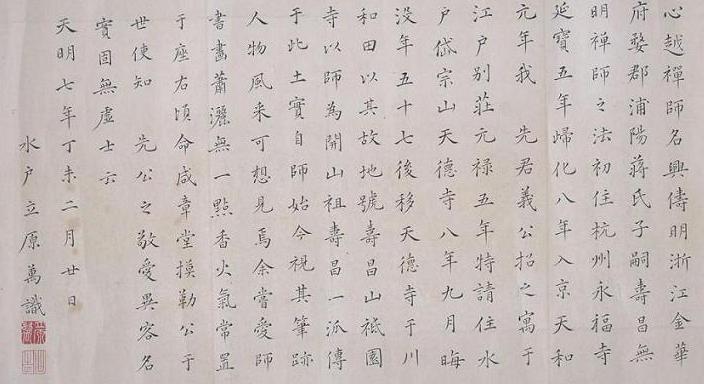 心越禪師名興儔明浙江金華
府婺郡浦陽蔣氏子嗣壽昌無
明禅師之法初住杭州永福寺
延寶五年歸化八年入京天和
元年我 先君義公招之寓于
江戸別莊元禄五年特請住水
戸岱宗山天德寺八年九月晦
没年五十七後移天德寺于川
和田以其故地號壽昌山祗園
寺以師為開山祖壽昌一派傳
于此土實自師始今視其筆跡
人物風采可想見焉余嘗愛師
書畫蕭灑無一點香火氣常置
于座右頃命咸章堂摸勒公于
世使知 先公之敬愛異容名
實固無虚士云
天明七年丁未二月廿日
水戸立原萬識